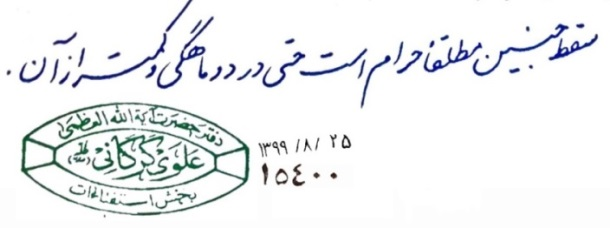 سقط جنین مطلقا حرام است حتی در دو ماهگی و کمتر از آن.
دفتر حضرت آیة الله العظمی
علوی گرگانی
بخش استفتائات
۱۳۹۹/۸/۲۵
۱۵۴۰۰